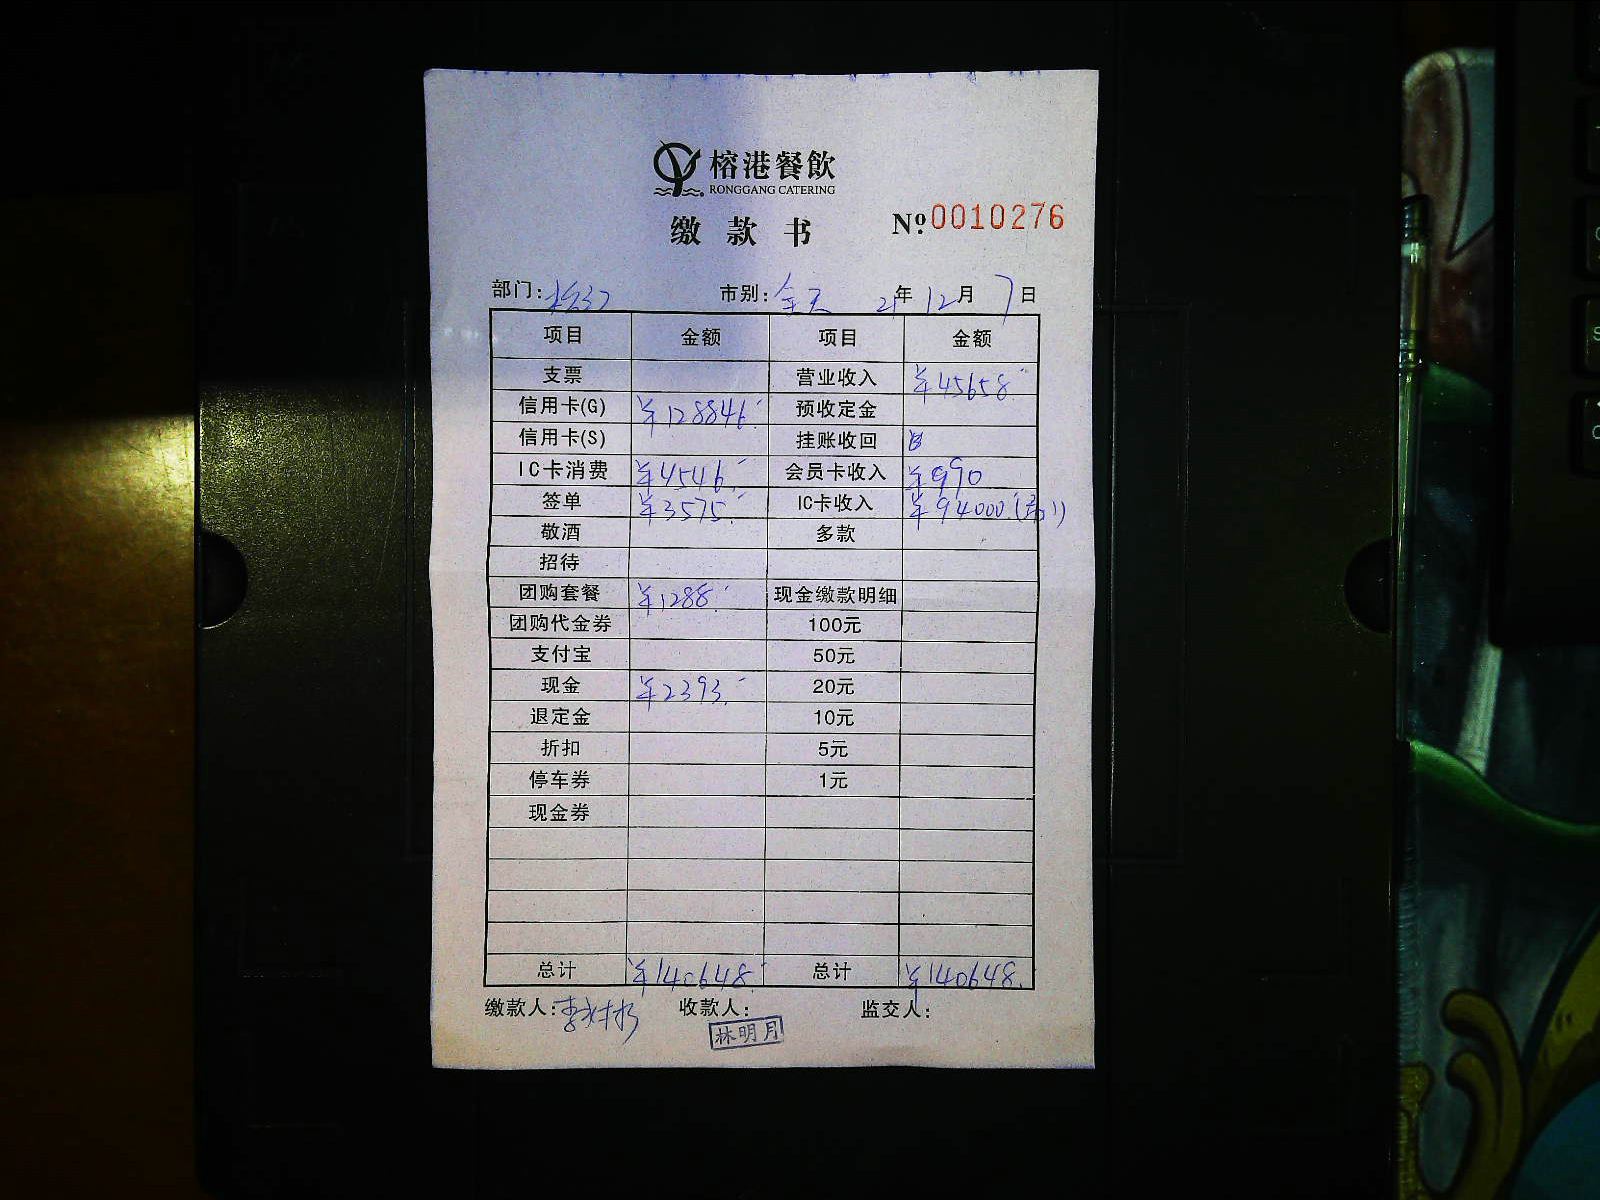 榕港餐飲
RONGGANG CATERING
缴款书 Nº 0010276
部门: 市别: 全天 21年 12月 7日
项目 金额 项目 金额
支票 营业收入 ¥45658.-
信用卡(G) ¥128846.- 预收定金
信用卡(S) 挂账收回
IC卡消费 ¥4546.- 会员卡收入 ¥990
签单 ¥3575.- IC卡收入 ¥94000
敬酒 多款
招待
团购套餐 ¥1288.- 现金缴款明细
团购代金券 100元
支付宝 50元
现金 ¥2393.- 20元
退定金 10元
折扣 5元
停车券 1元
现金券
总计 ¥140648.- 总计 ¥140648.
缴款人: 收款人: 监交人:
林明月